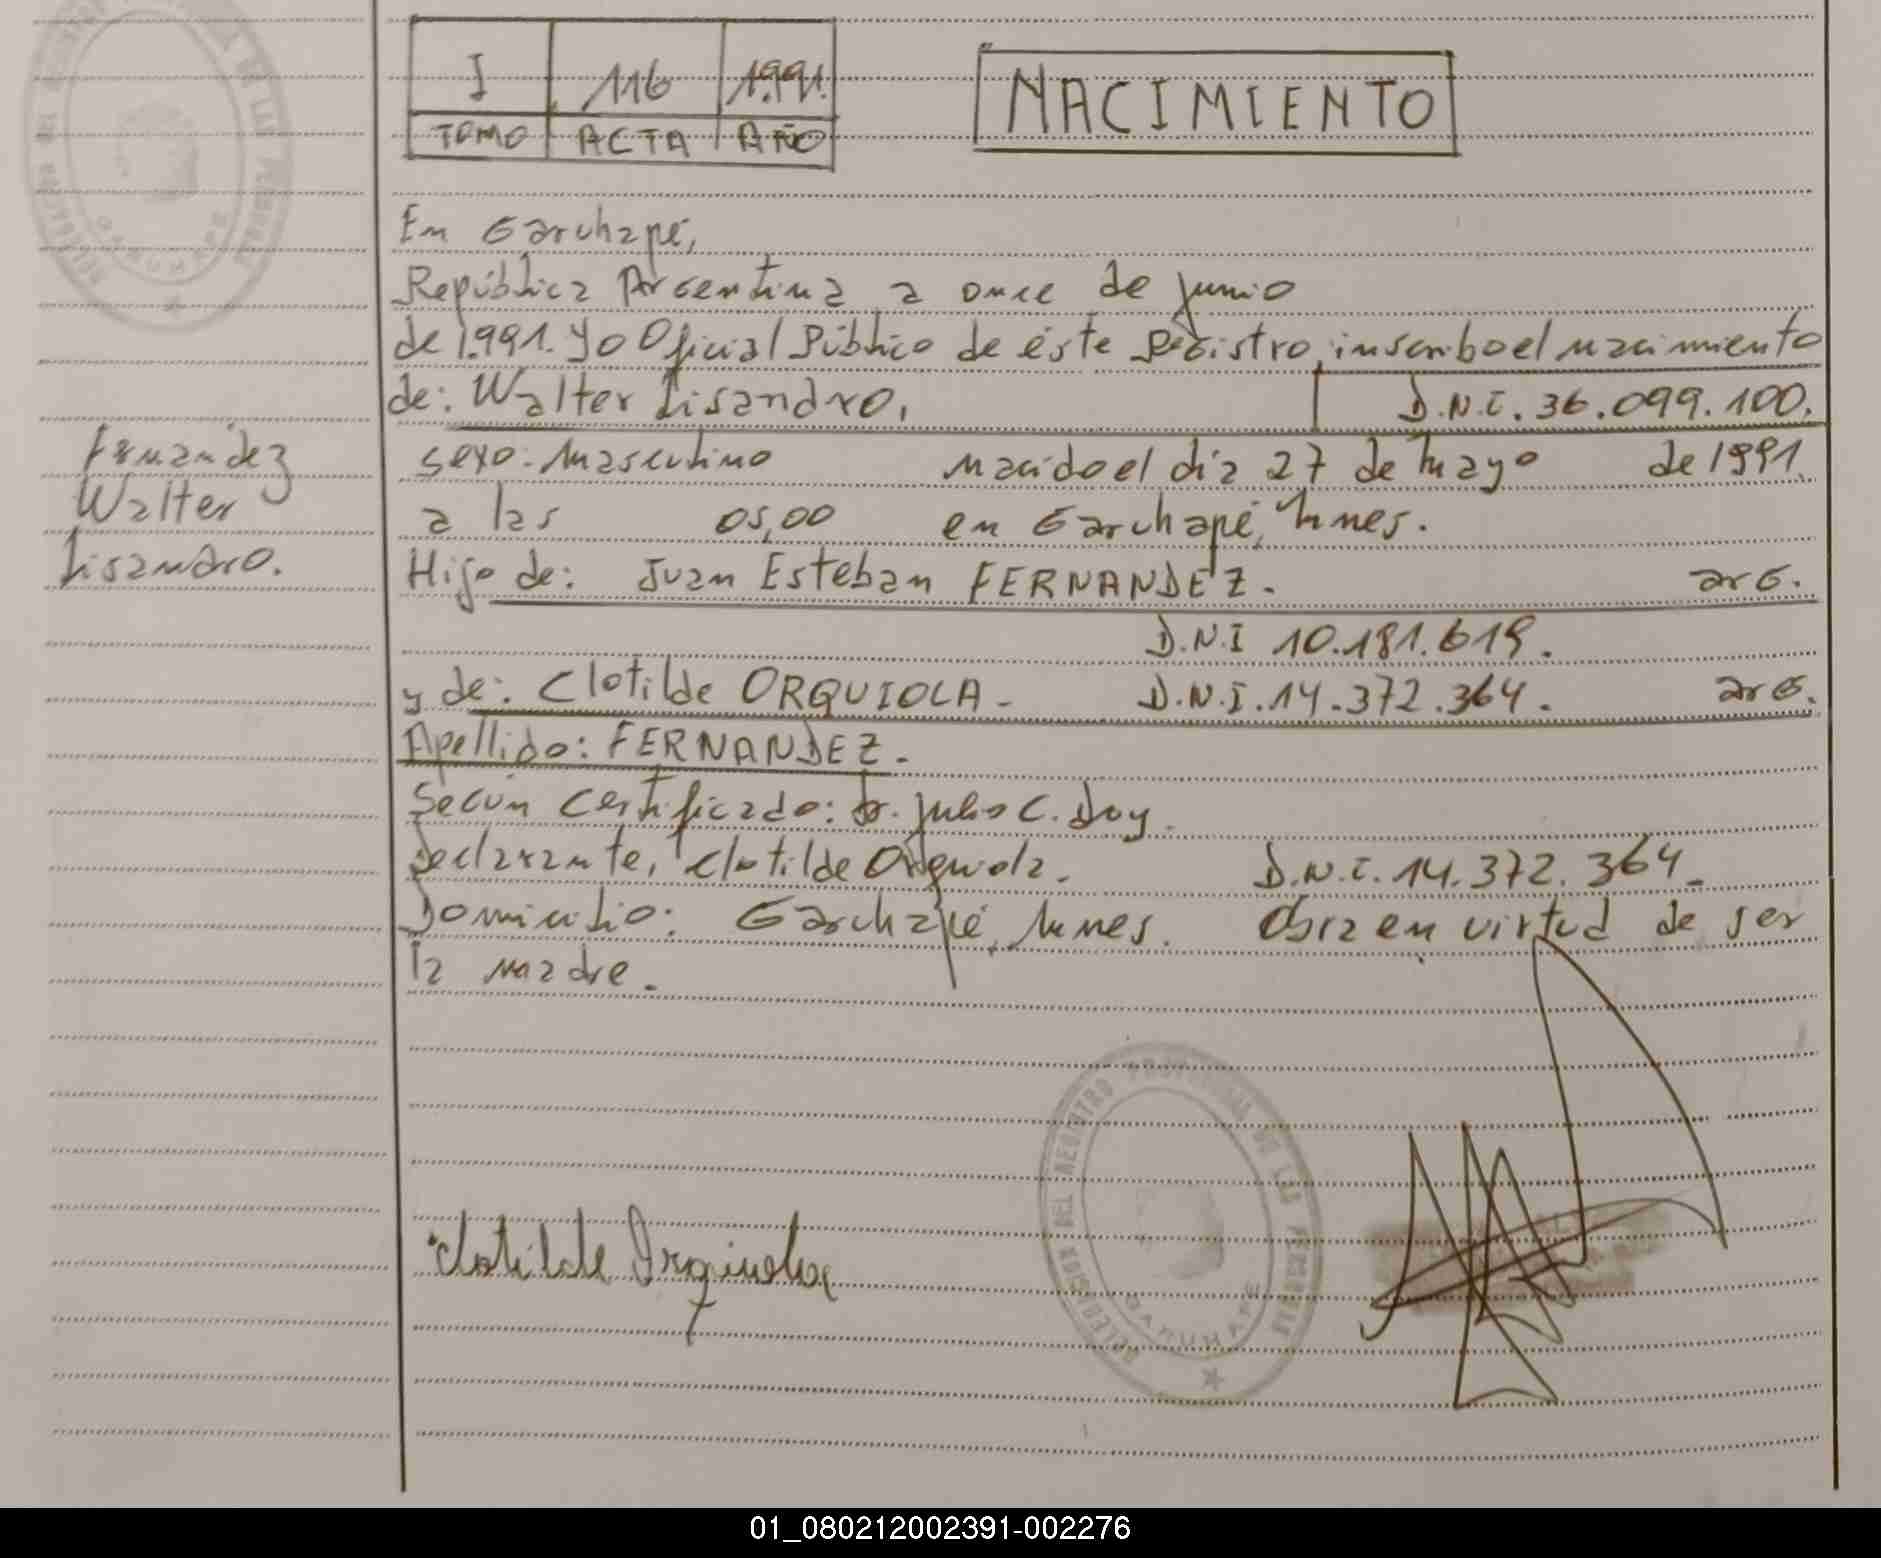 I 116 1.991.
TOMO ACTA AÑO
NACIMIENTO
En Garuhapé,
República Argentina a once de junio
de 1.991. Yo Oficial Público de éste Registro, inscribo el nacimiento
de: Walter Lisandro, D.N.I. 36.099.100.
Fernandez
Walter
Lisandro.
sexo: masculino nacido el día 27 de mayo de 1991.
a las 05,00 en Garuhapé, Mnes.
Hijo de: Juan Esteban FERNANDEZ. arg.
D.N.I 10.181.619.
y de: Clotilde ORQUIOLA - D.N.I. 14.372.364. arg.
Apellido: FERNANDEZ.
Según Certificado: Dr. Julio C. Doy.
Declarante, Clotilde Orquiola. D.N.I. 14.372.364.
Domicilio: Garuhapé, Mnes. Obra en virtud de ser
la madre.
Clotilde Orquiola
DELEGACION DEL REGISTRO PROVINCIAL DE LAS PERSONAS
GARUHAPE
01_080212002391-002276